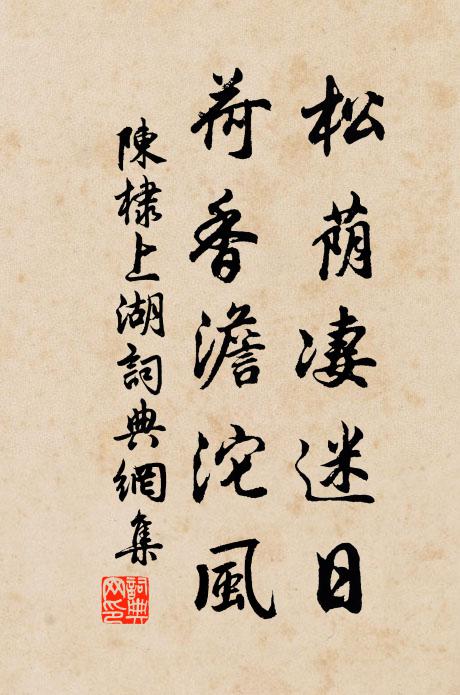 松荫凄迷日
荷香澹沱風
陳棣上湖詞典網集
詞典网印